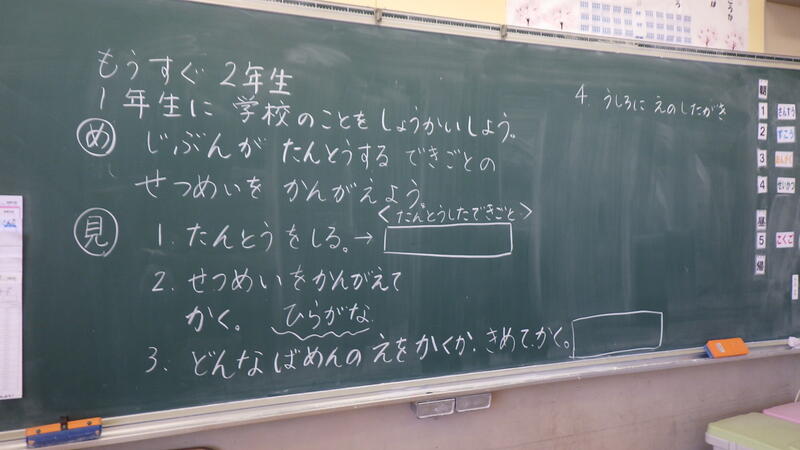 もうすぐ 2年生
1年生に 学校のことを しょうかいしよう。
め じぶんが たんとうする できごとの
せつめいを かんがえよう。
見 1. たんとうをしる。→ <たんとうしたできごと>
2. せつめいをかんがえて
かく。 ひらがな
3. どんなばめんの えを かくか、きめて、かく。
4. うしろに えの したがき
朝
1 さんすう
2
3
4 せいかつ
昼
5 こくご
帰